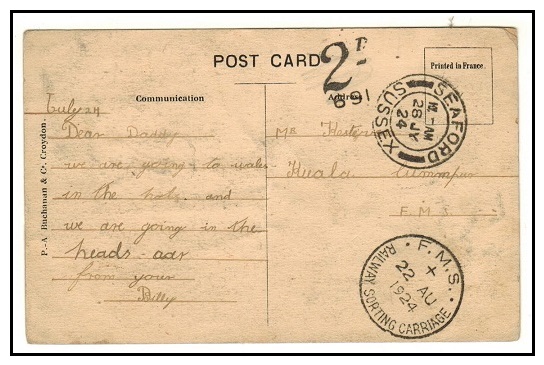 POST CARD
2D.
691
SEAFORD
XI-AM
28 JY
24
SUSSEX
Printed in France.
Communication
Address
P.-A Buchanan & Co. Croydon.
July 24
Dear Daddy
we are going to wales
in the hols. and
we are going in the
heads car
from your
Billy
Mr
Kuala Lumpur
F.M
F.M.S.
X
22 AU
1924
RAILWAY SORTING CARRIAGE